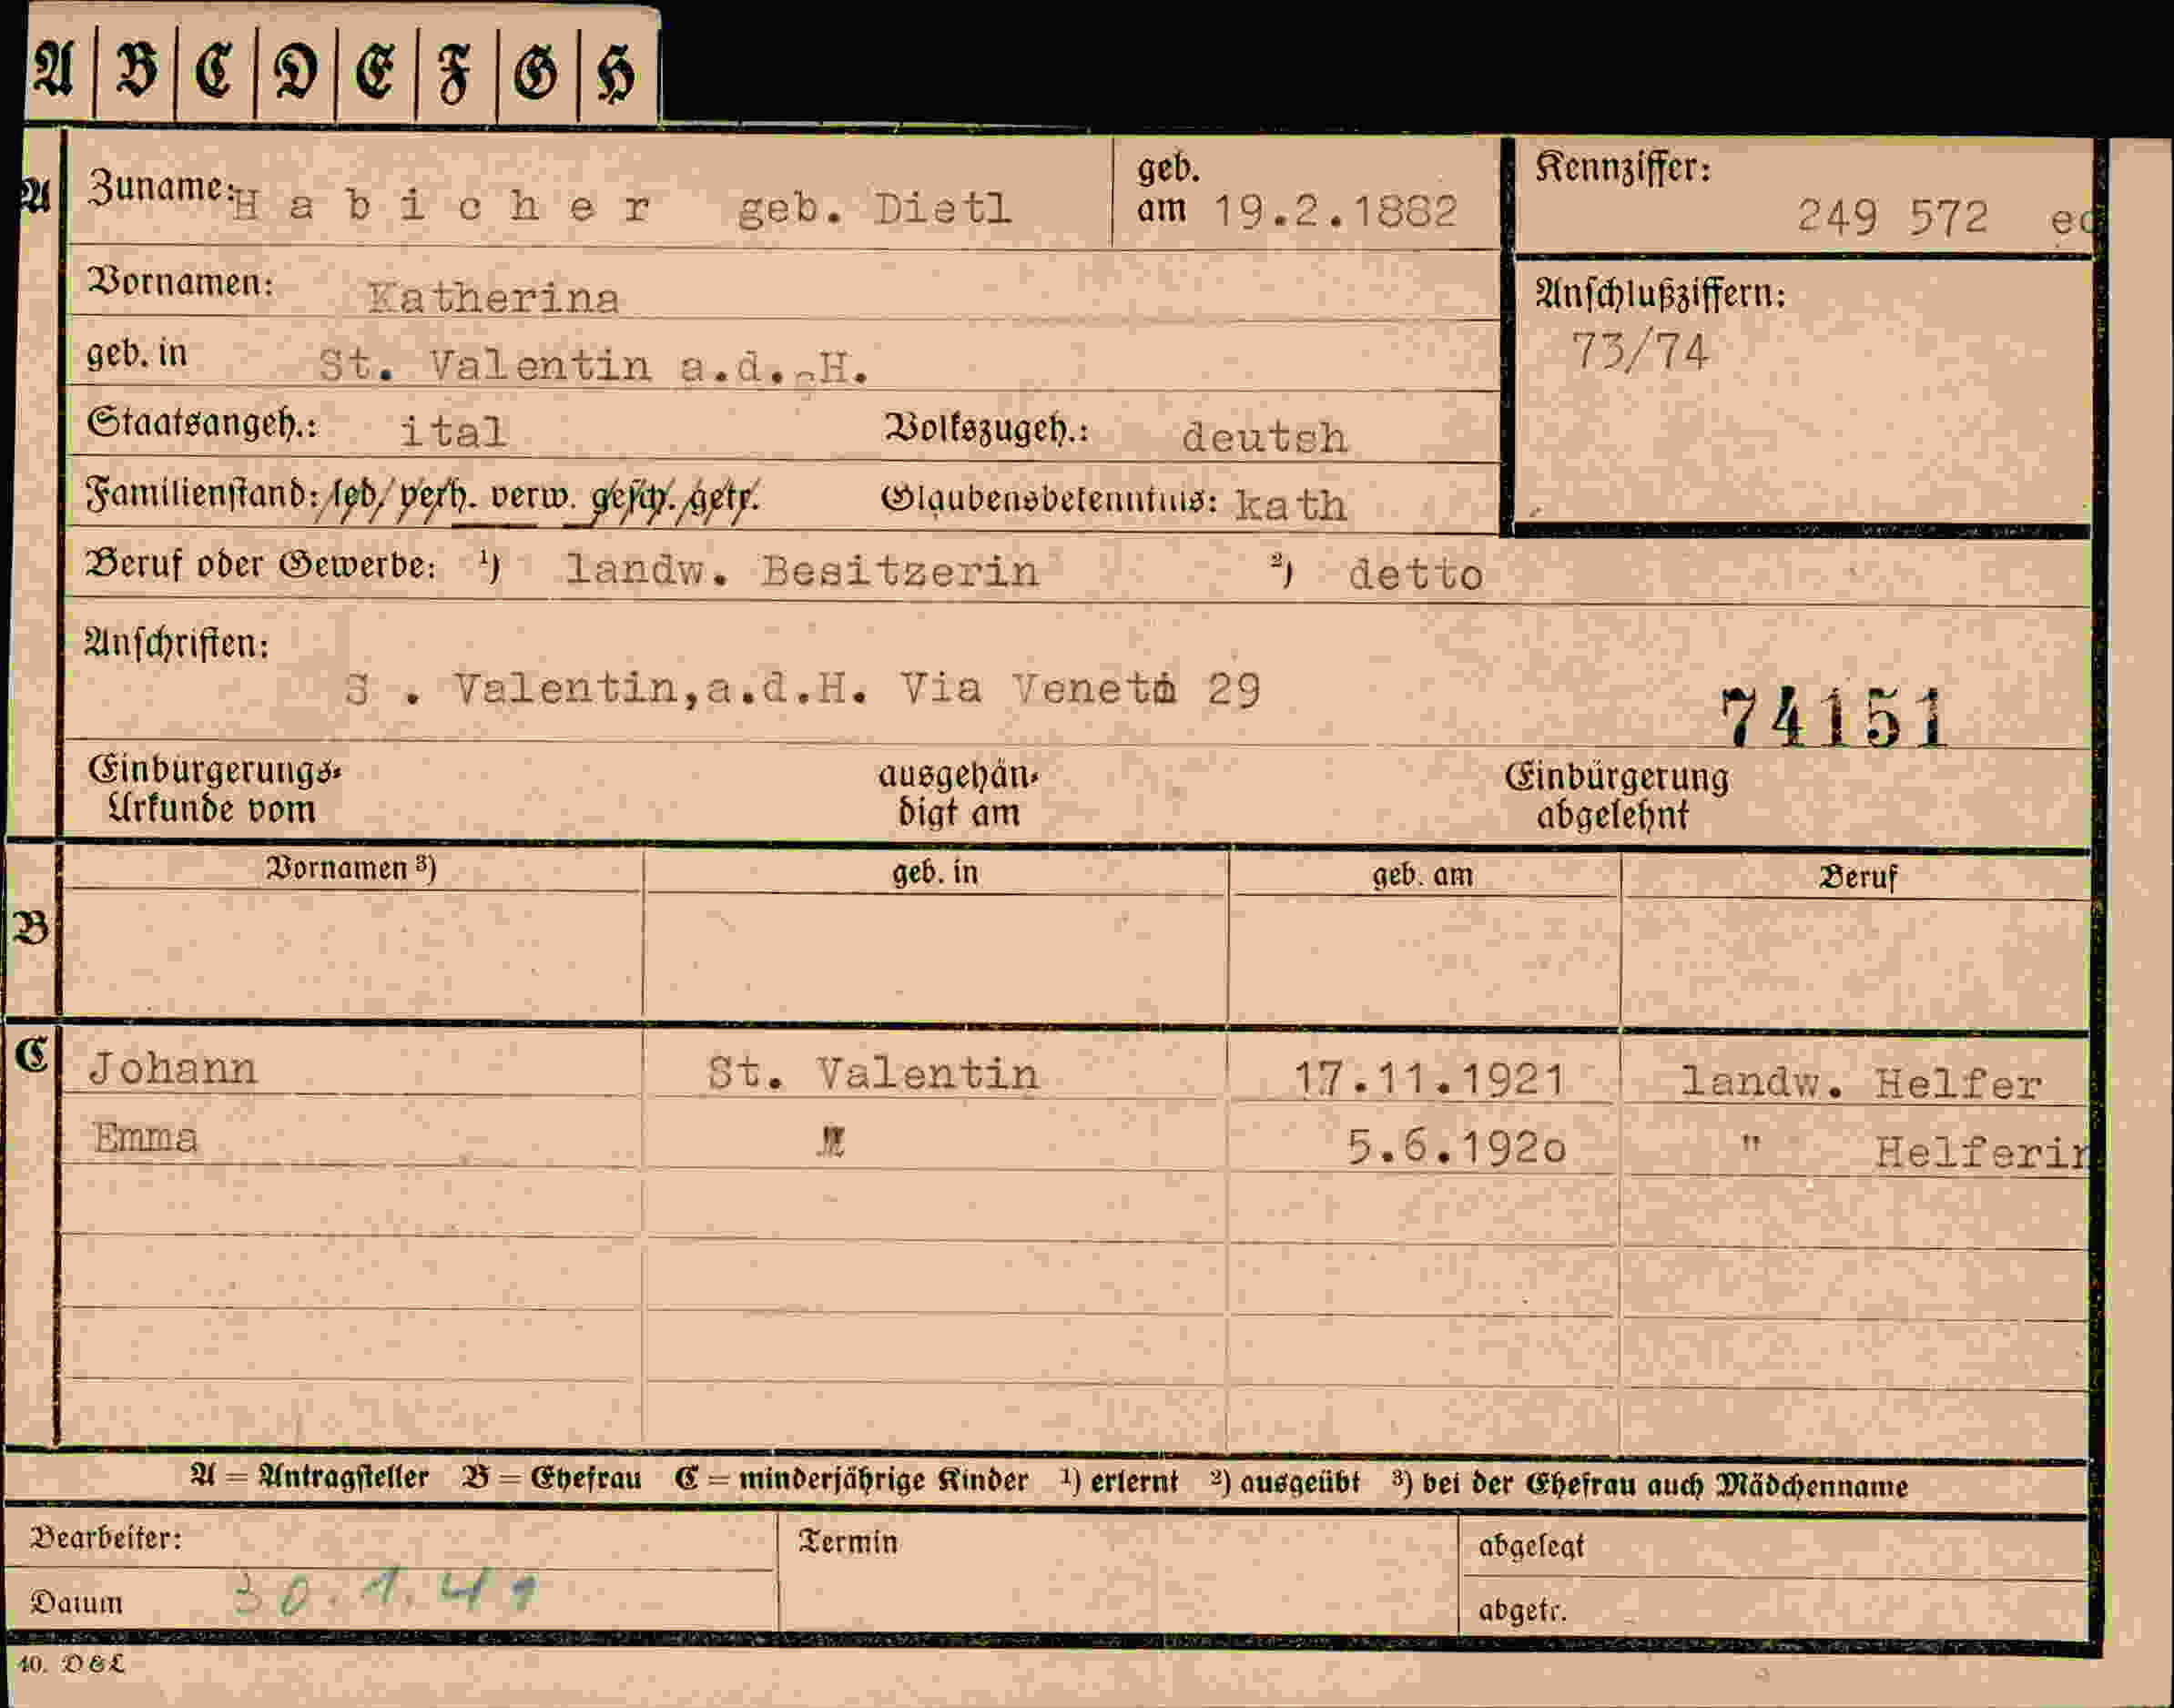 A B C D E F G H
A Zuname: Habicher geb. Dietl geb. am 19.2.1882 Kennziffer: 249 572
Vornamen: Katherina Anschlußziffern: 73/74
geb. in St. Valentin a.d.-H.
Staatsangeh.: ital Volkszugeh.: deutsh
Familienstand: led. verh. verw. gesch. getr. Glaubensbekenntnis: kath
Beruf oder Gewerbe: 1) landw. Besitzerin 2) detto
Anschriften:
S . Valentin,a.d.H. Via 29
74151
Einbürgerungs-Urkunde vom ausgehändigt am Einbürgerung abgelehnt
Vornamen 3) geb. in geb. am Beruf
B
C Johann St. Valentin 17.11.1921 landw. Helfer
Emma 5.6.192o " Helferin
A = Antragsteller B = Ehefrau C = minderjährige Kinder 1) erlernt 2) ausgeübt 3) bei der Ehefrau auch Mädchenname
Bearbeiter: Termin abgelegt
Datum 30.1.41 abgetr.
40. D&L